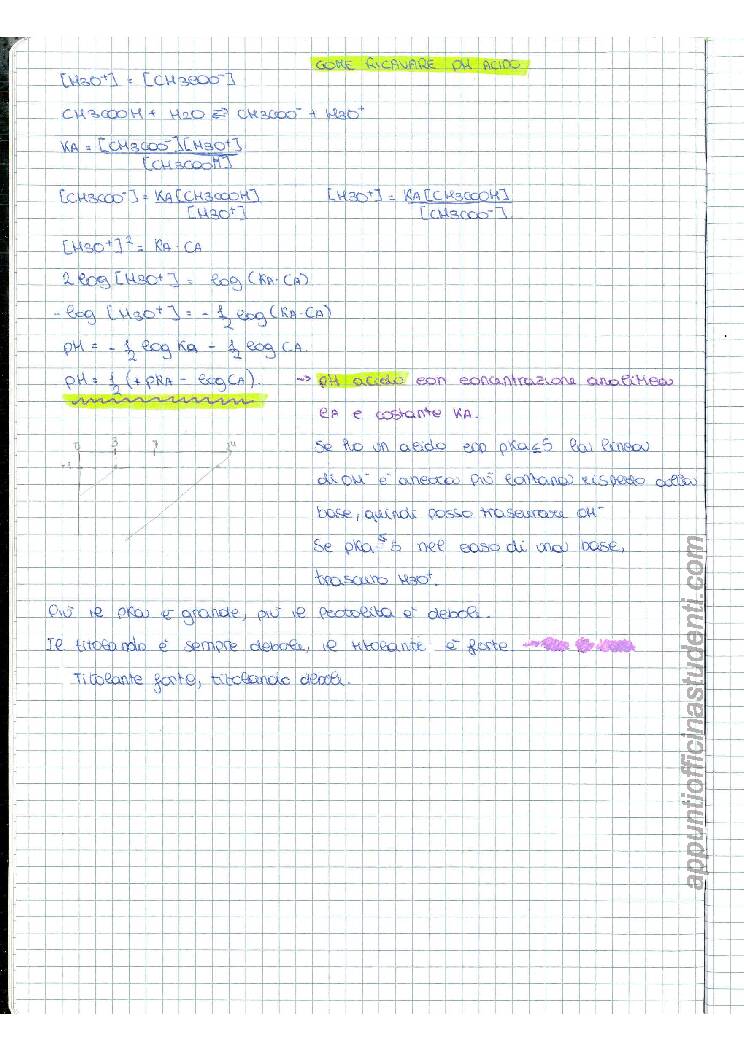 COME RICAVARE PH ACIDO
[H3O+] = [CH3COO-]
CH3COOH + H2O ⇄ CH3COO- + H3O+
KA = [CH3COO-][H3O+]
[CH3COOH]
[CH3COO-] = KA[CH3COOH] [H3O+] = KA[CH3COOH]
[H3O+] [CH3COO-]
[H3O+]² = KA · CA
2 log [H3O+] = log (KA · CA)
- log [H3O+] = - 1/2 log (KA · CA)
pH = - 1/2 log KA - 1/2 log CA.
pH = 1/2 (+ pKA - log CA). → pH acido con concentrazione analitica
CA e costante KA.
0 3 7 14
Se ho un acido con pKa ≤ 5 la linea
di OH- è ancora più lontana rispetto alla
base, quindi posso trascurare OH-
Se pKa ≤ 5 nel caso di una base,
trascuro H3O+.
Più il pKa è grande, più il protolita è debole.
Il titolando è sempre debole, il titolante è forte
Titolante forte, titolando debole.
appuntiofficinastudenti.com